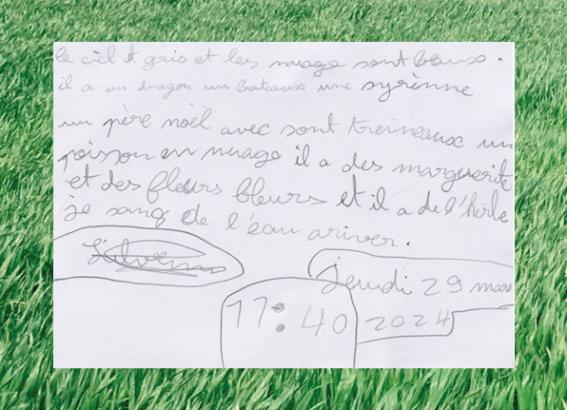 le ciel et gris et les nuage sont blaus.
il a un dragon un bateaux une syrènne
un père noël avec sont treineaux un
poisson en nuage il a des marguerite
et des fleurs bleurs et il a de l'herbe
je sang de l'eau ariver.
jeudi 29 mars
17:40 2024